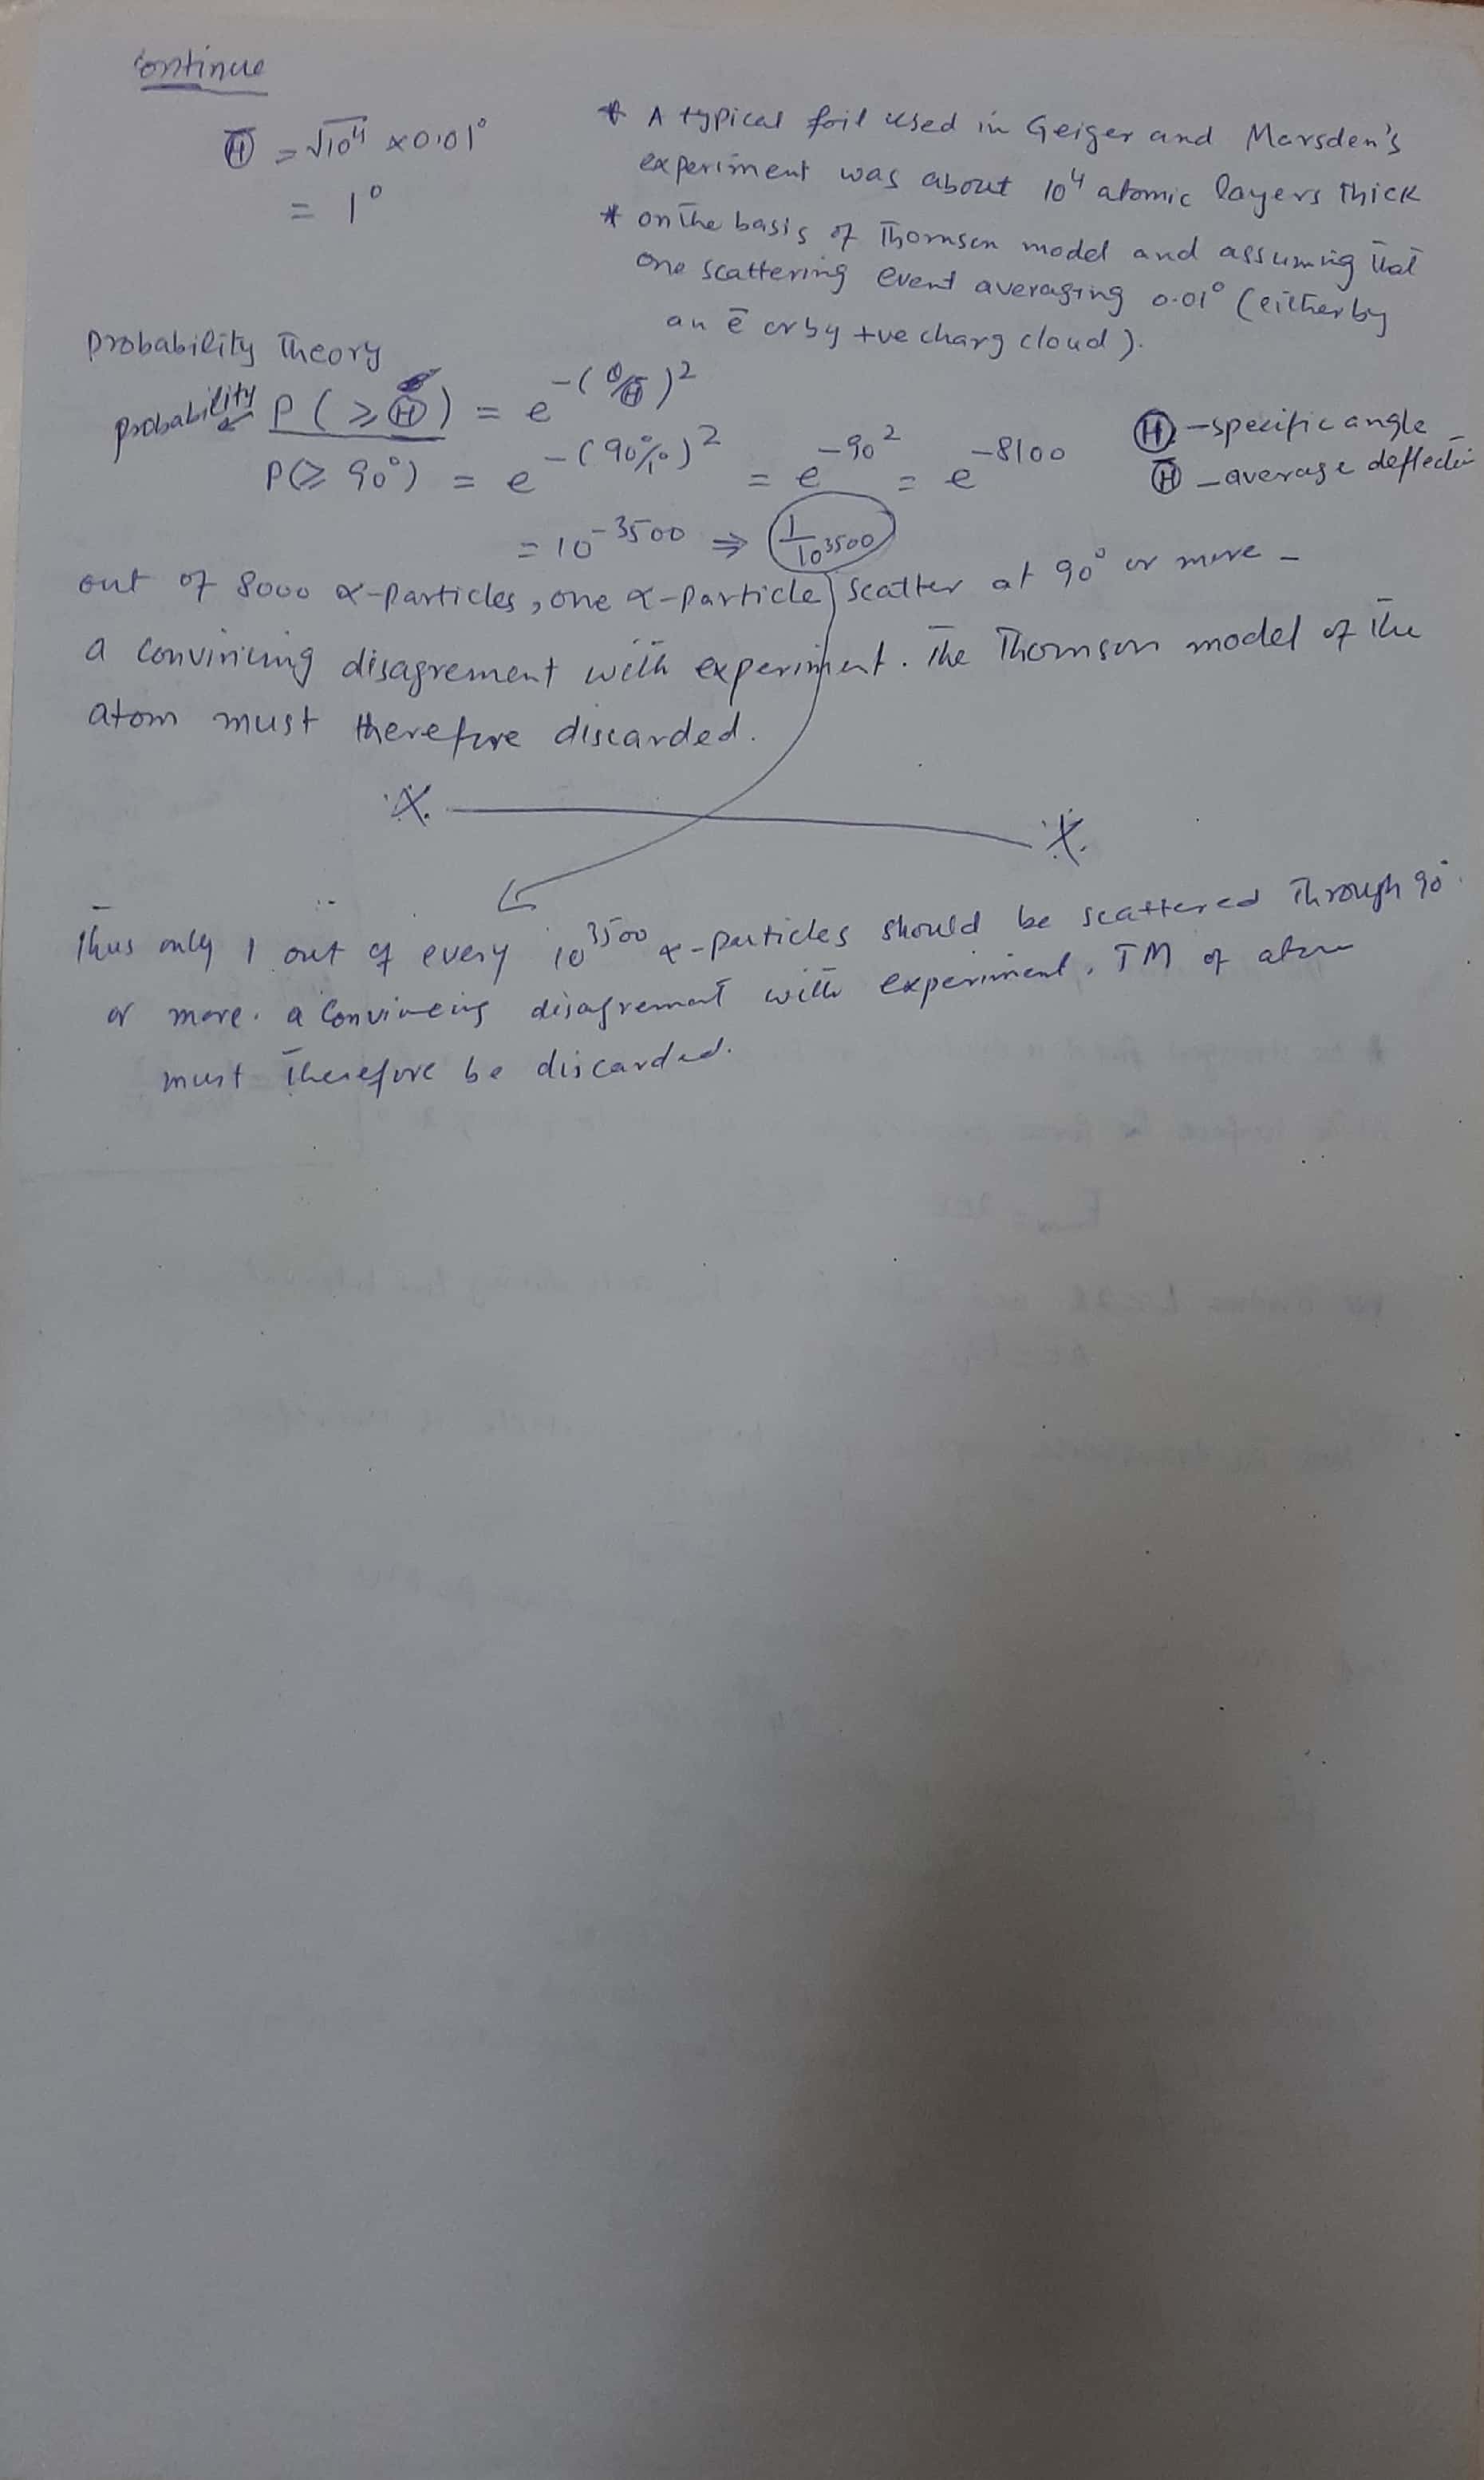 Continue
Θ̅ = √10⁴ × 0.01°
= 1°
* A typical foil used in Geiger and Marsden's
experiment was about 10⁴ atomic layers thick
* on the basis of Thomson model and assuming that
one scattering event averaging 0.01° (either by
an e̅ or by +ve charg cloud).
Probability Theory
probability P(≥Θ) = e^-(θ/Θ̅)²
Θ - specific angle
P(≥ 90°) = e^-(90°/1°)² = e^-90² = e^-8100
Θ̅ - average deflection
= 10^-3500 ⇒ 1/10^3500
out of 8000 α-particles, one α-particle scatter at 90° or more -
a convinicing disagrement with experiment. The Thomson model of the
atom must therefore discarded.
Thus only 1 out of every 10^3500 α-particles should be scattered Through 90°
or more. a Convinceing disagrement with experiment, TM of atom
must Therefore be discarded.